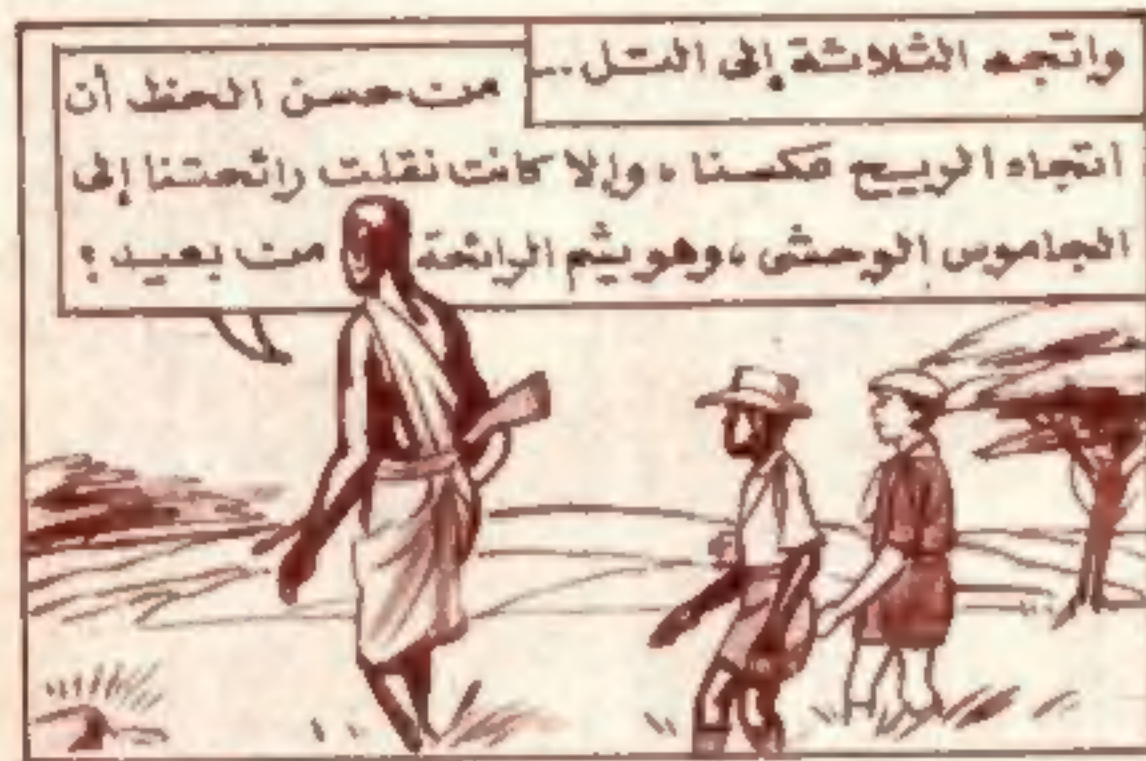 واتجه الثلاثة إلى التل ...
من حسن الحظ أن
اتجاه الريح عكسنا ، وإلا كانت نقلت رائحتنا إلى
الجاموس الوحشى ، وهو يشم الرائحة من بعيد !